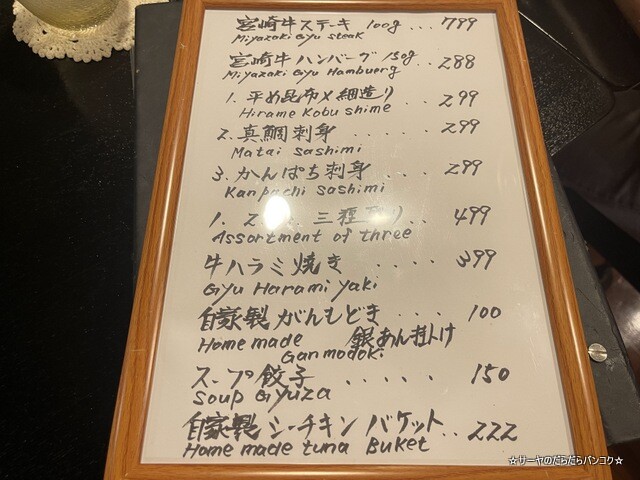 宮崎牛ステーキ 100g ... 799
Miyazaki Gyu steak
宮崎牛 ハンバーグ 150g .. 288
Miyazaki Gyu Hambuerg
1. 平め昆布〆細造り .. 299
Hirame Kobu shime
2. 真鯛刺身 ..... 299
Matai sashimi
3. かんぱち刺身 .... 299
Kanpachi sashimi
1. 2. 三種 り .. 499
Assortment of three
牛ハラミ焼き .... 399
Gyu Harami yaki
自家製 がんもどき .... 100
Home made 銀あん掛け
Ganmodoki
スープ餃子 ..... 150
Soup Gyuza
自家製 シーチキン バケット .. 222
Home made tuna Buket
☆サーヤのだらだらバンコク☆